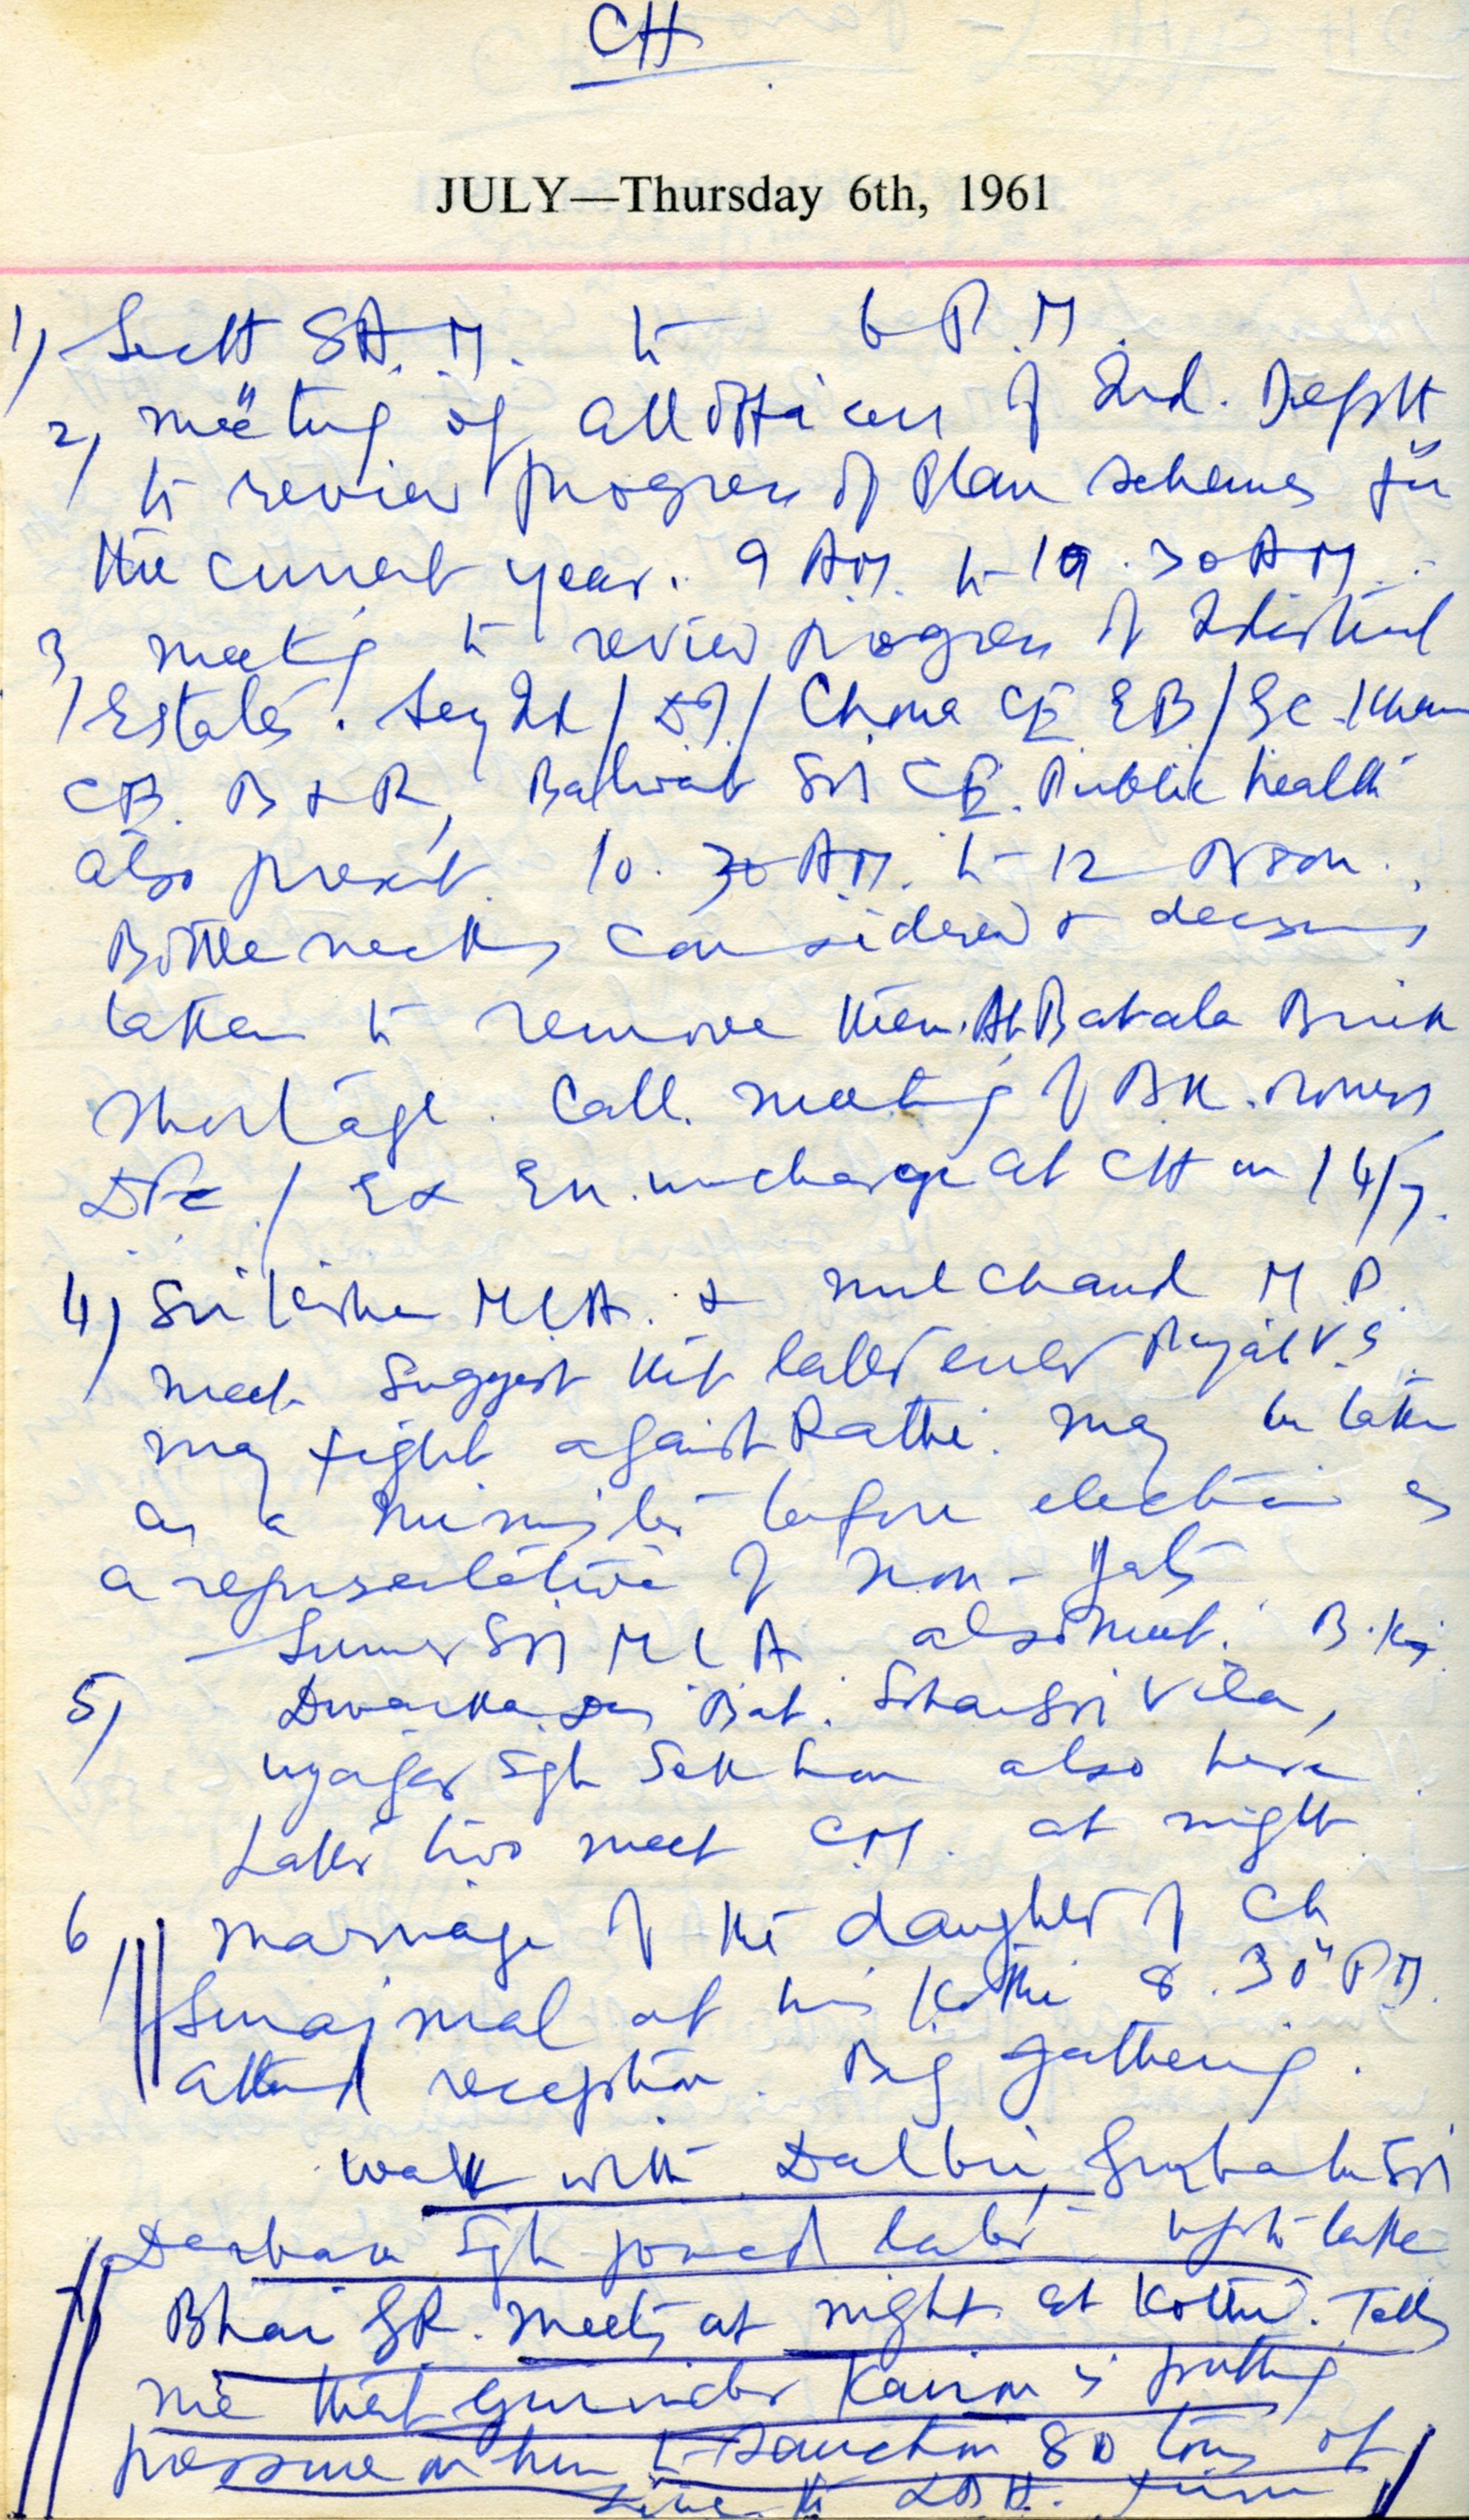 CH
JULY—Thursday 6th, 1961
1) Sectt 8 A.M. to 6 P.M.
2) meeting of all officers of Ind. Deptt
to review progress of Plan schemes for
the current year. 9 AM. to 10.30 AM.
3) meeting to review progress of Industrial
Estates. Secy Ind / DI / Chona CE EB / Khan
CE. B & R, Balwant Sgh CE. Public health
also present. 10.30 AM. to 12 Noon.
Bottlenecks considered & decisions
taken to remove them. At Batala Brick
shortage. Call meeting of BK. owners,
/ Ex En. incharge at CH on 14/7.
4) Sri Kishen MLA. & Mul Chand M.P.
meet. Suggest that latter
may fight against Rathi. may be taken
as a minister before election as
a representative of non-Jats
Sumer Sgh MLA also meet.
5) Dwarka Das Bat. Sohan Sgh
Ujagar Sgh Sekhon also here.
Latter two meet CM. at night
6) marriage of the daughter of Ch
Surajmal at his Kothi 8.30 PM.
Attend reception. Big gathering.
walk with Dalbir, Gurbaksh Sgh
Darbara Sgh joined later upto lake
7) Bhai GR. meets at night at Kothi. Tells
me that Gurinder Kairon is putting
pressure on him to sanction 80 tons of
to firm